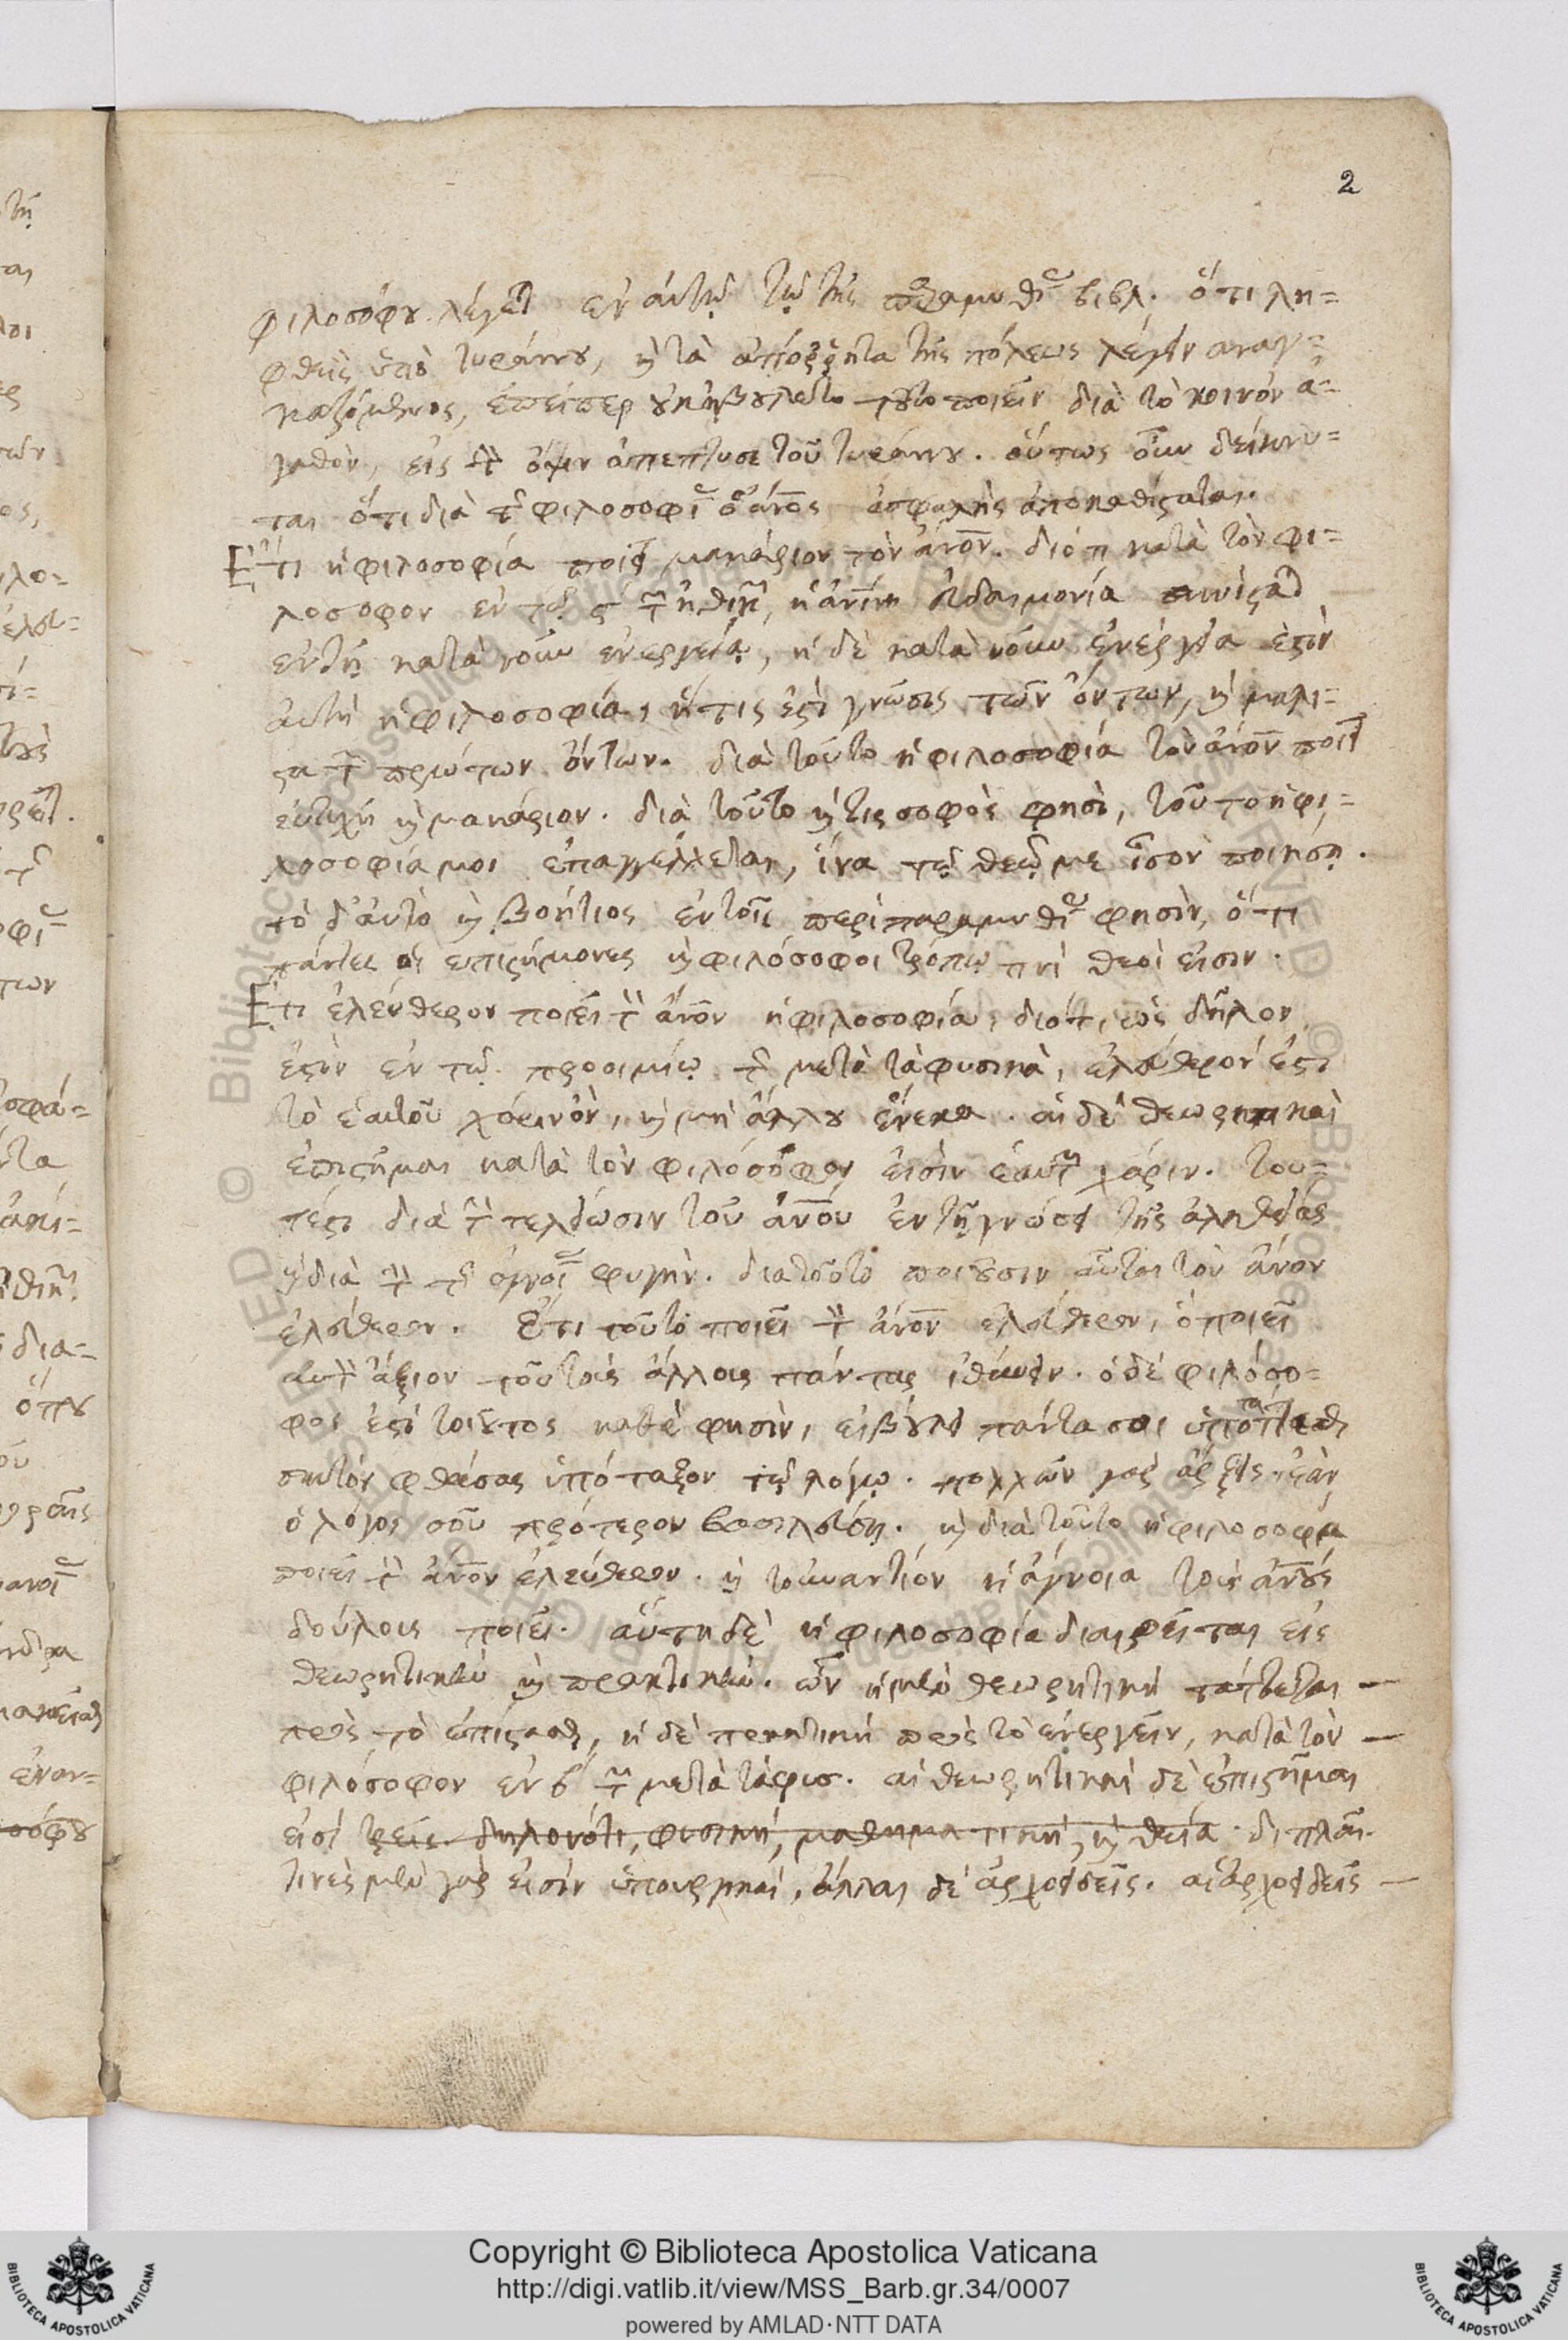 2
φιλοσόφου λέγει ἐν αὐτῷ τῷ τῆς παραμυθίας βιβλ. ὅτι λη=
φθεὶς ὑπὸ τυράννου, καὶ τὰ ἀπόρρητα τῆς πόλεως λέγειν αναγ=
καζόμενος, ἐπείπερ οὐκ ἠβούλετο τοῦτο ποιεῖν διὰ τὸ κοινὸν ἀ=
γαθὸν, εἰς τὴν ὄψιν ἀπέπτυσε τοῦ τυράννου. οὕτως οὖν δείκνυ=
ται ὅτι διὰ τῆς φιλοσοφίας ὁ ἄνος ἀσφαλὴς ἀποκαθίσταται.
Ἔτι ἡ φιλοσοφία ποιεῖ μακάριον τὸν ἄνον. διότι κατὰ τὸν φι=
λόσοφον ἐν τῷ ϛ τῶν ἠθικῶν, ἡ ἀνίνη εὐδαιμονία συνίσταται
ἐν τῇ κατὰ νοῦν ἐνεργείᾳ, ἡ δὲ κατὰ νοῦν ἐνέργεια ἐστὶν
αὐτὴ ἡ φιλοσοφία, ἥτις ἐστὶ γνῶσις τῶν ὄντων, καὶ μάλι=
στα τῶν πρώτων ὄντων. διὰ τοῦτο ἡ φιλοσοφία τὸν ἄνον ποιεῖ
εὐτυχῆ καὶ μακάριον. διὰ τοῦτο καὶ τις σοφὸς φησὶ, τοῦτο ἡ φι=
λοσοφία μοι ἐπαγγέλλεται, ἵνα τῷ θεῷ με ἴσον ποιήσῃ.
τὸ δ' αὐτὸ καὶ βοήτιος ἐν τοῖς περὶ παραμυθίας φησὶν, ὅτι
πάντες οἱ ἐπιστήμονες καὶ φιλόσοφοι τρόπῳ τινὶ θεοί εἰσιν.
Ἔτι ἐλεύθερον ποιεῖ τὸν ἄνον ἡ φιλοσοφία, διότι, ὡς δῆλον
ἐστὶν ἐν τῷ προοιμίῳ τῶν μετὰ τὰ φυσικὰ, ἐλεύθερόν ἐστι
τὸ ἑαυτοῦ χάριν ὂν, καὶ μὴ ἄλλου ἕνεκα. αἱ δὲ θεωρητικαὶ
ἐπιστῆμαι κατὰ τὸν φιλόσοφον εἰσὶν ἑαυτῶν χάριν. του=
τέστι διὰ τὴν τελείωσιν τοῦ ἄνου ἐν τῇ γνώσει τῆς ἀληθείας
καὶ διὰ τὴν τῆς ἀγνοίας φυγὴν. διὰ τοῦτο ποιοῦσιν αὗται τὸν ἄνον
ἐλεύθερον. Ἔτι τοῦτο ποιεῖ τὸν ἄνον ἐλεύθερον, ὃ ποιεῖ
αὐτὸν ἄξιον τοῦ τοὺς ἄλλους πάντας ἰθύνειν. ὁ δὲ φιλόσο=
φος ἐστὶ τοιοῦτος καθά φησὶν, εἰ βούλει πάντα σοι ὑποτάττεσθαι
σαυτὸν φθάσας ὑπόταξον τῷ λόγῳ. πολλῶν γὰρ ἄρξεις. ἐὰν
ὁ λόγος σοῦ πρότερον βασιλεύσῃ. καὶ διὰ τοῦτο ἡ φιλοσοφία
ποιεῖ τὸν ἄνον ἐλεύθερον. καὶ τοὐναντίον ἡ ἄγνοια τοὺς ἄνους
δούλους ποιεῖ. αὕτη δὲ ἡ φιλοσοφία διαιρεῖται εἰς
θεωρητικὴν καὶ πρακτικὴν. ὧν ἡ μὲν θεωρητικὴ τάττεται
πρὸς τὸ ἐπίστασθαι, ἡ δὲ πρακτικὴ πρὸς τὸ ἐνεργεῖν, κατὰ τὸν
φιλόσοφον ἐν β τῶν μετὰ τὰ φυσ. αἱ θεωρητικαὶ δὲ ἐπιστῆμαι
εἰσὶ τρεῖς. δηλονότι, φυσικὴ, μαθηματικὴ, καὶ θεία. διπλαῖ.
τινὲς μὲν γὰρ εἰσὶν ὑπουργικαὶ, ἄλλαι δὲ ἀρχοειδεῖς. αἱ ἀρχοειδεῖς
Copyright © Biblioteca Apostolica Vaticana
http://digi.vatlib.it/view/MSS_Barb.gr.34/0007
powered by AMLAD·NTT DATA
BIBLIOTECA APOSTOLICA VATICANA
BIBLIOTECA APOSTOLICA VATICANA